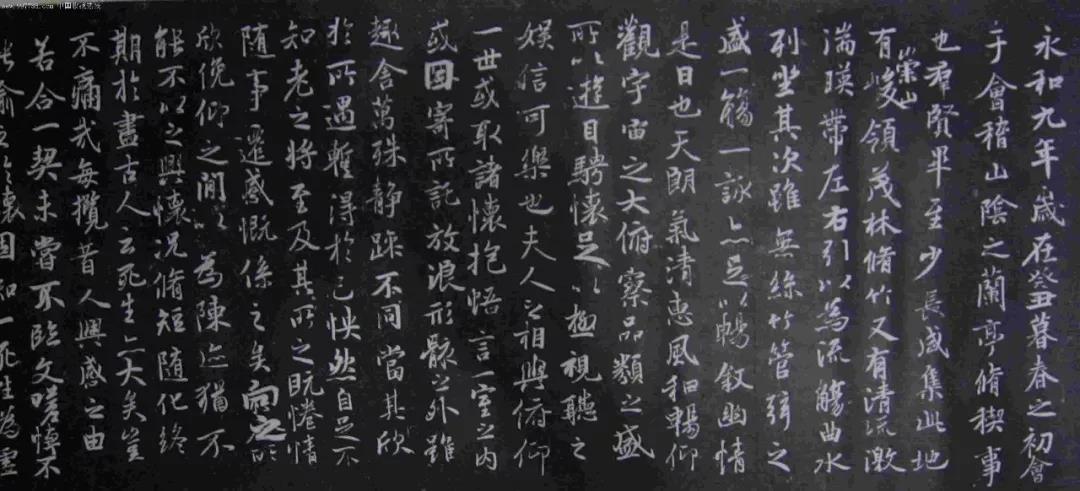 永和九年歲在癸丑暮春之初會
于會稽山陰之蘭亭脩稧事
也羣賢畢至少長咸集此地
有崇山峻領茂林脩竹又有清流激
湍暎帶左右引以為流觴曲水
列坐其次雖無絲竹管弦之
盛一觴一詠亦足以暢敘幽情
是日也天朗氣清惠風和暢仰
觀宇宙之大俯察品類之盛
所以遊目騁懷足以極視聽之
娛信可樂也夫人之相與俯仰
一世或取諸懷抱悟言一室之內
或因寄所託放浪形骸之外雖
趣舍萬殊靜躁不同當其欣
於所遇暫得於己怏然自足不
知老之將至及其所之既惓情
隨事遷感慨係之矣向之所
欣俛仰之間以為陳迹猶不
能不以之興懷況脩短隨化終
期於盡古人云死生亦大矣豈
不痛哉每攬昔人興感之由
若合一契未嘗不臨文嗟悼不
能喻之於懷固知一死生為虛